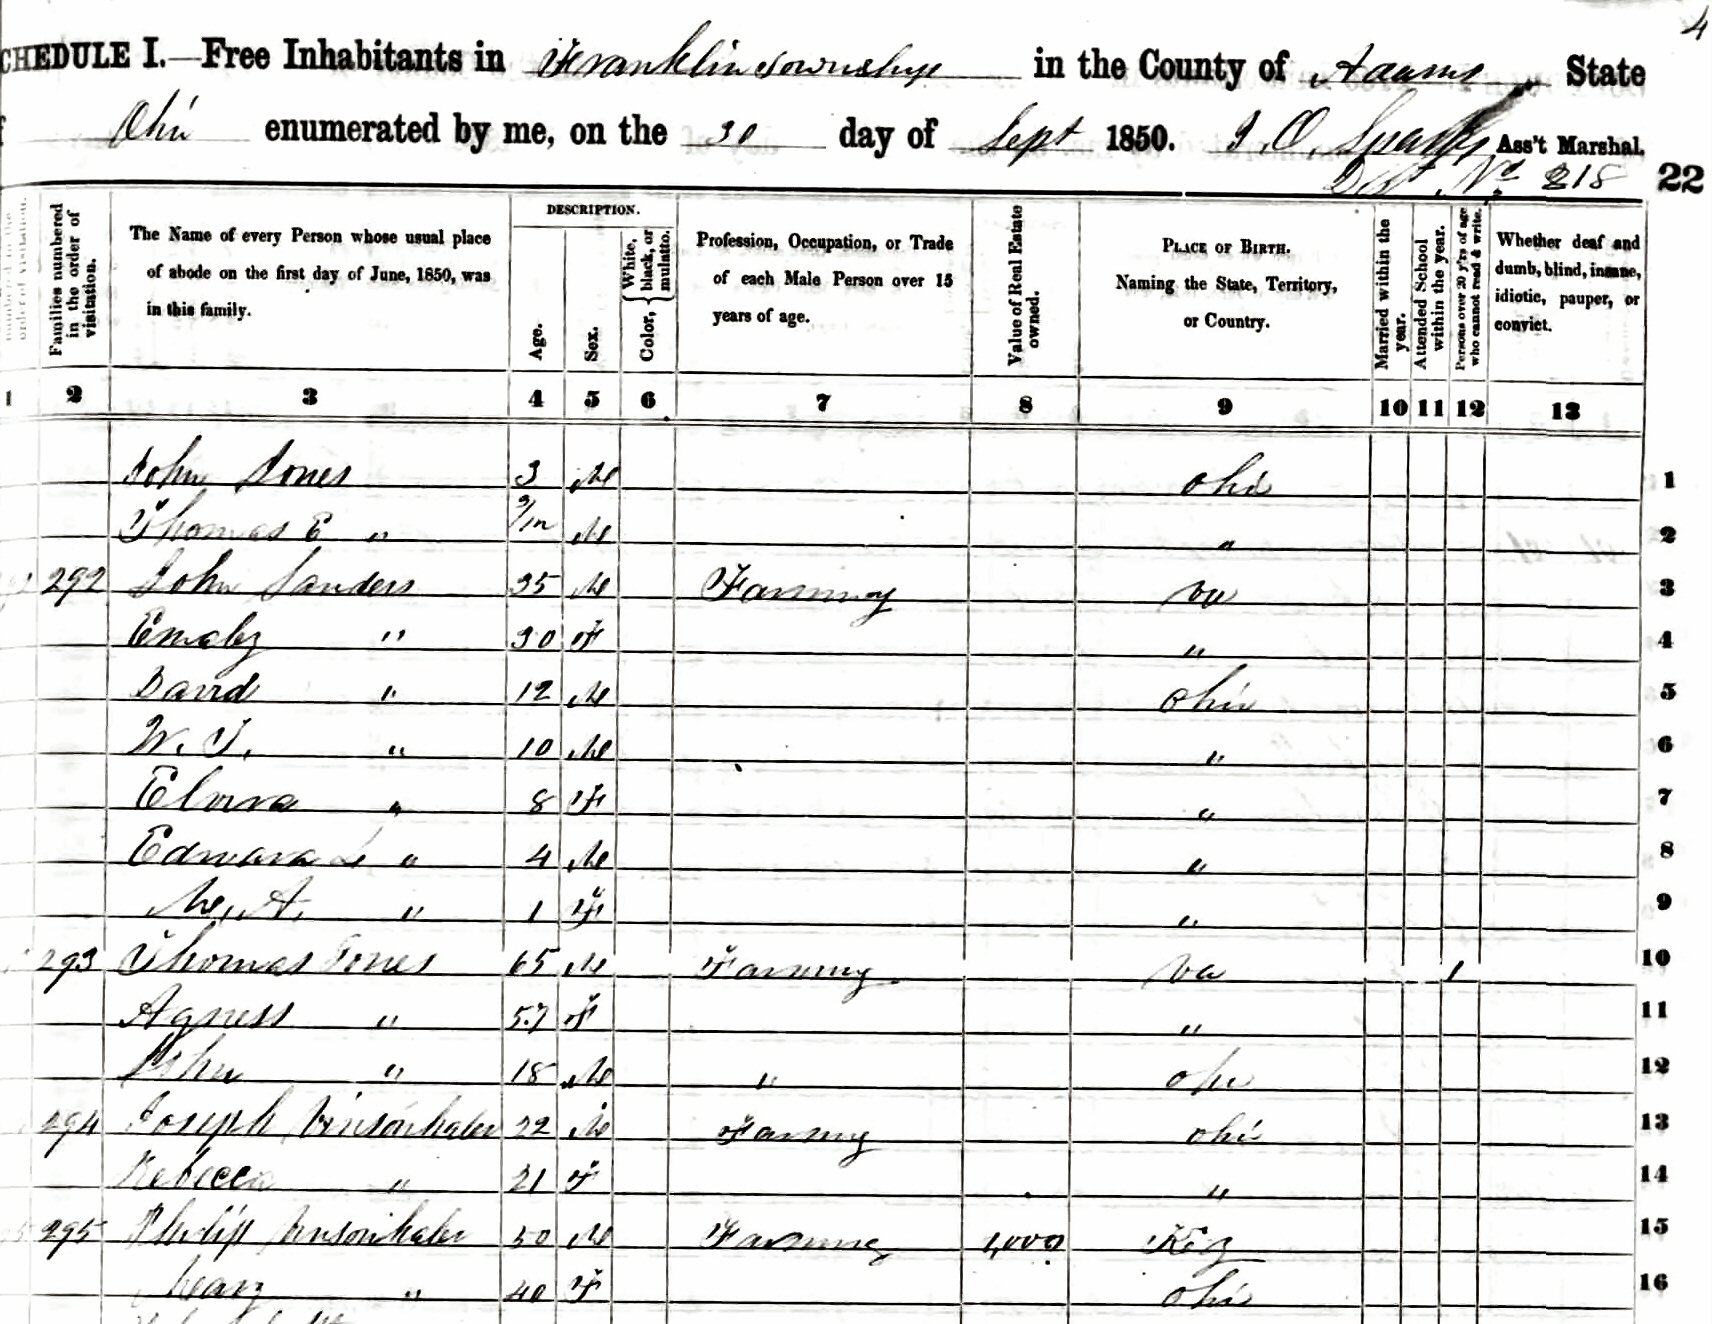 4
CHEDULE I.—Free Inhabitants in Franklin Township in the County of Adams State
Ohio enumerated by me, on the 30 day of Sept 1850. J. O. Sparks Ass't Marshal.
Dist. No. 218 22
Families numbered in the order of visitation. The Name of every Person whose usual place of abode on the first day of June, 1850, was in this family. DESCRIPTION. Age. Sex. Color, { White, black, or mulatto. Profession, Occupation, or Trade of each Male Person over 15 years of age. Value of Real Estate owned. PLACE OF BIRTH. Naming the State, Territory, or Country. Married within the year. Attended School within the year. Persons over 20 y'rs of age who cannot read & write. Whether deaf and dumb, blind, insane, idiotic, pauper, or convict.
1 2 3 4 5 6 7 8 9 10 11 12 13
John Jones 3 M Ohio 1
Thomas E " M " 2
292 John Sanders 35 M Farming Va 3
Emaly " 30 F " 4
David " 12 M Ohio 5
W. T. " 10 M " 6
Elvira " 8 F " 7
Edward L " 4 M " 8
M. A. " 1 F " 9
293 Thomas Jones 65 M Farming Va 1 10
Agness " 57 F " 11
John " 18 M " Ohio 12
294 Joseph Vinsonhaler 22 M Farming Ohio 13
Rebecca " 21 F " 14
295 Philip Vinsonhaler 50 M Farming 1,000 Key 15
Mary " 40 F Ohio 16